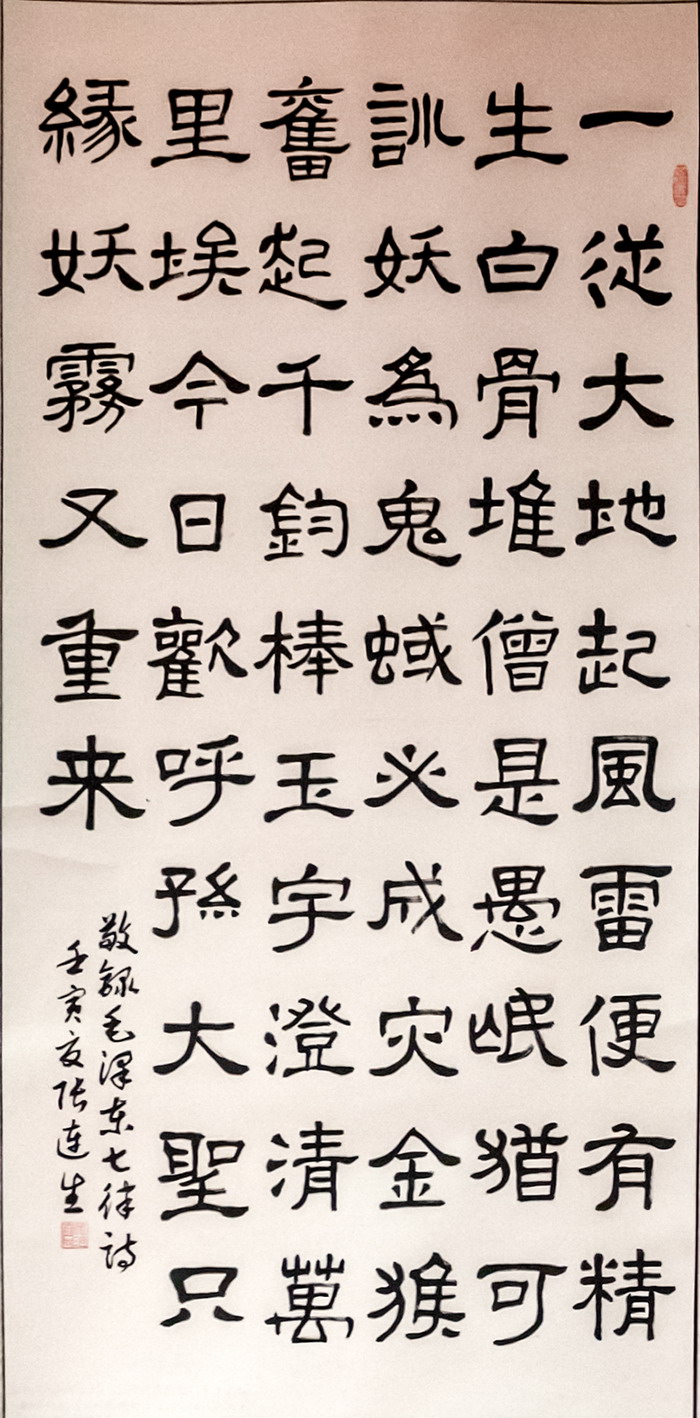 一從大地起風雷便有精
生白骨堆僧是愚岷猶可
訓妖為鬼蜮必成灾金猴
奮起千鈞棒玉宇澄清萬
里埃今日歡呼孫大聖只
緣妖霧又重来
敬録毛澤东七律詩
壬寅夏张連生